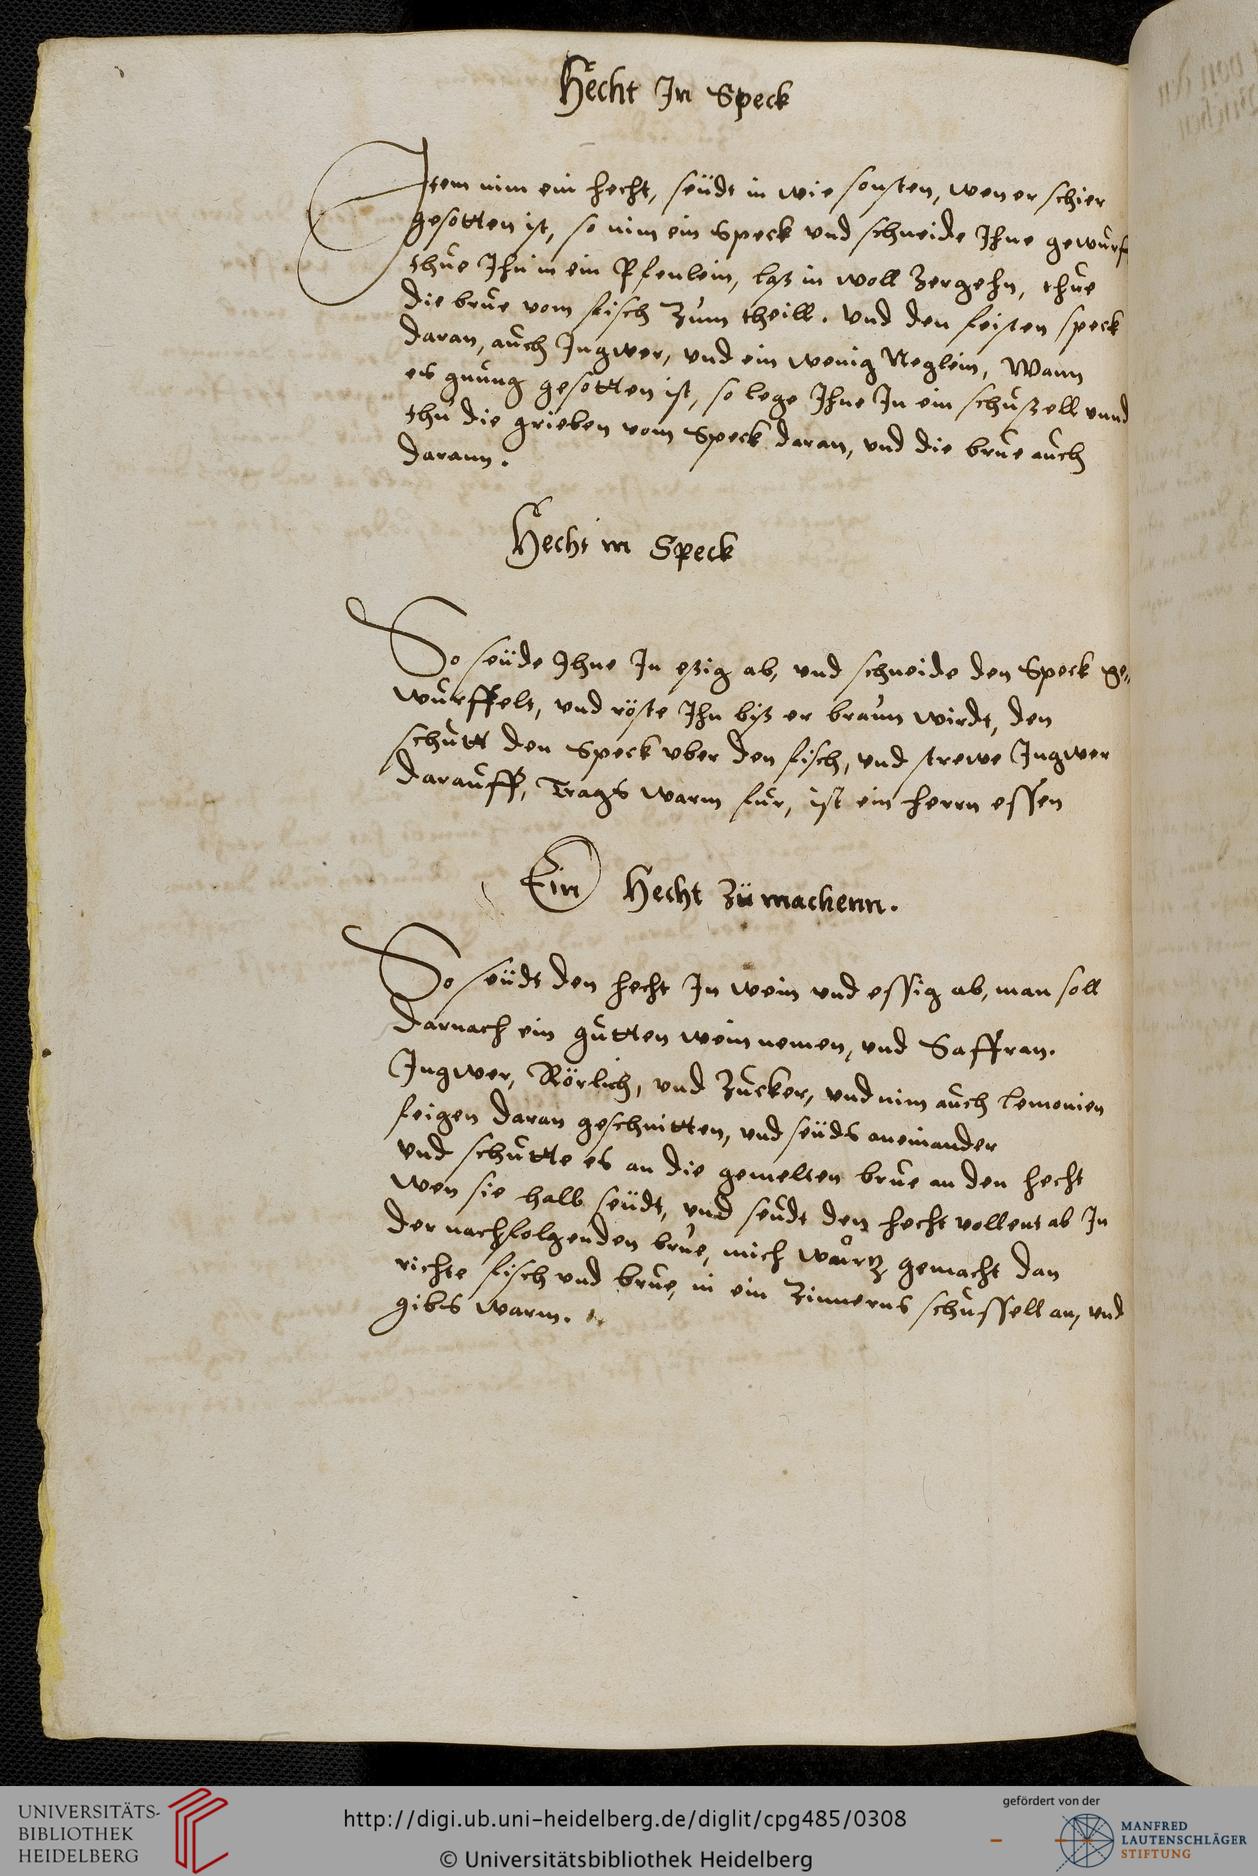 Hecht In Speck
Item nim ein hecht, seüdt in wie sonsten, wen er schier
gesotten ist, so nim ein Speck vnd schneide Ihne gewurf
thue Ihn in ein Pfenlein, laß in woll Zergehn, thue
die brue vom fisch Zum theill. vnd den feisten speck
daran, auch Ingwer, vnd ein wenig Neglein, Wann
es gnung gesotten ist, so lege Ihne In ein schußell vnnd
thu die grieben vom Speck daran, vnd die brue auch
darann.
Hecht in Speck
So seüde Ihne In eßig ab, vnd schneide den Speck ge„
wurffelt, vnd röste Ihn biß er braun wirdt, den
schutt den Speck vber den fisch, vnd strewe Ingwer
darauff, Trags warm fur, ist ein herrn essen
Ein Hecht Zü machenn.
So seüdt den hecht In wein vnd essig ab, man soll
darnach ein gutten wein nemen, vnd Saffran.
Ingwer, Rörlich, vnd Zucker, vnd nim auch lemonien
feigen daran geschnitten, vnd seüds aneinander
vnd schutte es an die gemelten brue an den hecht
wen sie halb seüdt, vnd seudt den hecht vollent ab In
der nachfolgenden brue, mich wůrtz gemacht dan
richte fisch vnd brue, in ein Zinnerns schussell an, vnd
gibs warm.
UNIVERSITÄTS-
BIBLIOTHEK
HEIDELBERG
http://digi.ub.uni-heidelberg.de/diglit/cpg485/0308
© Universitätsbibliothek Heidelberg
gefördert von der
MANFRED
LAUTENSCHLÄGER
STIFTUNG